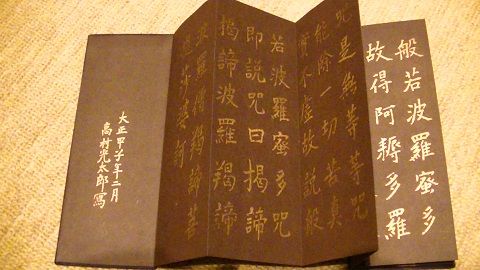 般若波羅蜜多
故得阿耨多羅
咒是無等等咒
能除一切苦真
實不虛故説般
若波羅蜜多咒
即説咒曰揭諦
揭諦波羅羯諦
波羅僧羯諦菩
提莎婆訶
大正甲子年二月
高村光太郎寫